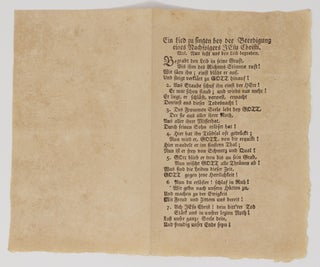 Ein Lied zu singen bey der Beerdigung
eines Nachfolgers JEsu Christi,
Mel. Nun laßt uns den Leib begraben.
Begrabt den Leib in seine Gruft,
Bis ihm des Richters Stimme ruft!
Wir säen ihn; einst blüht er auf,
Und steigt verklärt zu GOTT hinauf!
2. Aus Staube schuf ihn einst der HErr!
Er war schon Staub; und wirds nur mehr!
Er liegt, er schläft, verwest, erwacht
Dereinst aus dieser Todesnacht!
3. Des Frommen Seele lebt bey GOTT,
Der sie aus aller ihrer Noth,
Aus aller ihrer Missethat,
Durch seinen Sohn erlöset hat!
4. Hier hat ihn Trübsal oft gedrückt;
Nun wird er, GOTT, von dir erquickt!
Hier wandelt er im finstern Thal;
Nun ist er frey von Schmerz und Quaal!
5. GOtt blieb er treu bis an sein Grab,
Nun wischt GOTT alle Thränen ab!
Was sind die Leiden dieser Zeit,
GOTT gegen jene Herrlichkeit!
6 Nun du erlößter! schlaf in Ruh!
Wir gehn nach unsern Hütten zu,
Und machen zu der Ewigkeit
Mit Freud und Zittern uns bereit!
7. Ach JEsu Christ! dein bittrer Tod
Stärk uns in unsrer lezten Noth!
Laß unsre ganze Seele dein,
Und freudig unser Ende seyn!